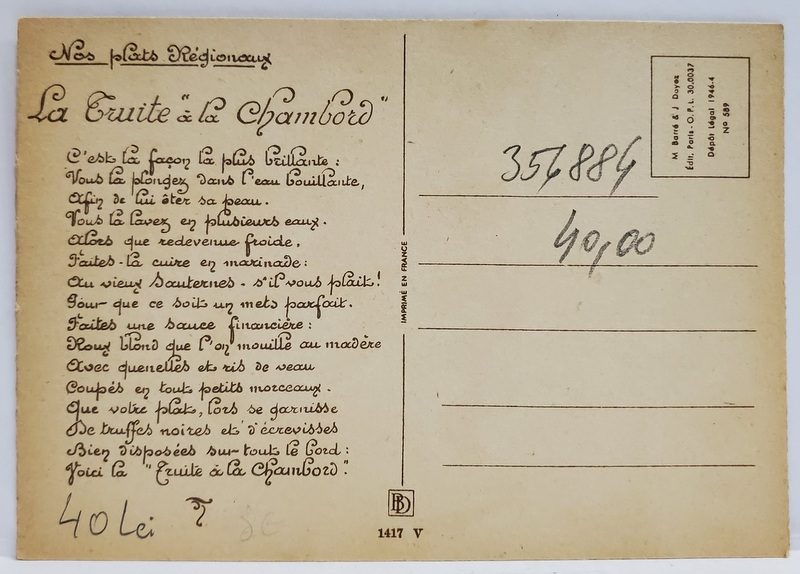 Nos plats Régionaux
La Truite "à la Chambord"
C'est la façon la plus brillante :
Vous la plongez dans l'eau bouillante,
Afin de lui ôter sa peau.
Vous la lavez en plusieurs eaux.
Alors que redevenue froide,
Faites-la cuire en marinade :
Au vieux Sauternes - s'il vous plait !
Pour que ce soit un mets parfait.
Faites une sauce financière :
Roux blond que l'on mouille au madère
Avec quenelles et ris de veau
Coupés en tout petits morceaux.
Que votre plat, lors se garnisse
De truffes noires et d'écrevisses
Bien disposées sur tout le bord :
Voici la "Truite à la Chambord".
40 Lei
BD
1417 V
IMPRIMÉ EN FRANCE
M Barré & J Dayez
Édit. Paris - O.P.L. 30.0037
Dépôt Légal 1946-4
N° 589
354884
40,00